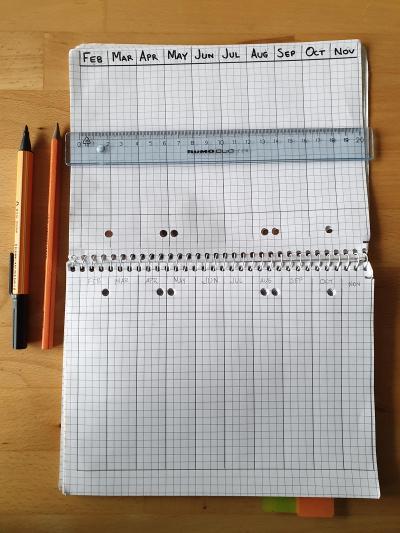 FEB MAR APR MAY JUN JUL AUG SEP OCT NOV
0 1 2 3 4 5 6 7 8 9 10 11 12 13 14 15 16 17 18 19 20
RUMOLD
FEB MAR APR MAY JUN JUL AUG SEP OCT NOV